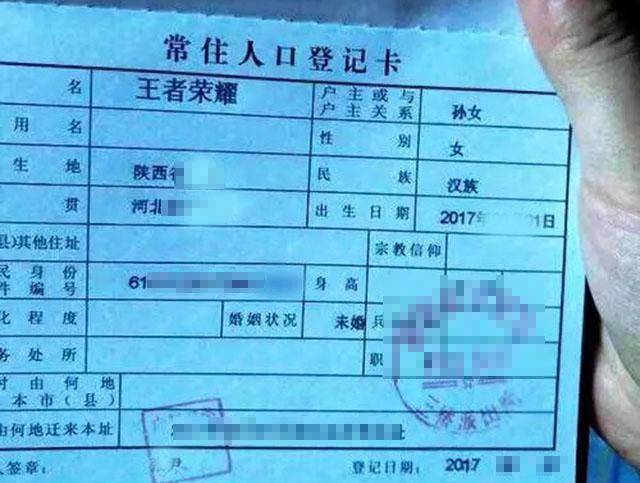 常住人口登记卡
名 王者荣耀 户主或与户主关系 孙女
用名 性别 女
生地 陕西省 民族 汉族
贯 河北 出生日期 2017年 01日
县)其他住址 宗教信仰
民身份件编号 61 身高
化程度 婚姻状况 未婚 兵
务处所 职
时由何地本市(县)
由何地迁来本址
人签章: 登记日期: 2017